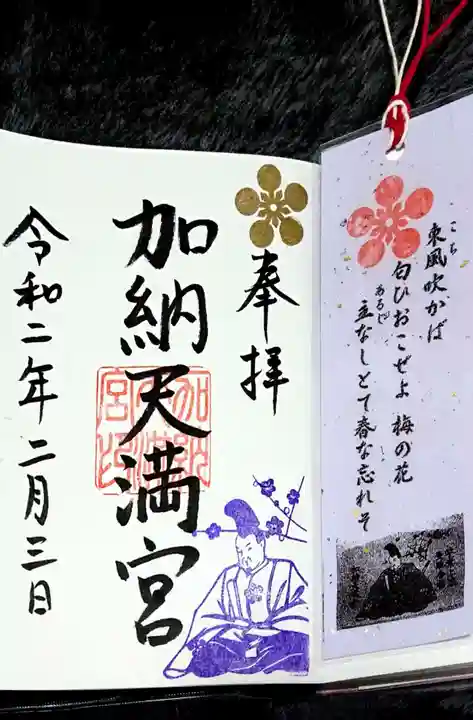 東風吹かば
こち
匂ひおこぜよ 梅の花
あるじ
主なしとて春な忘れそ
奉拝
加納天満宮
加納天満宮印
令和二年二月三日